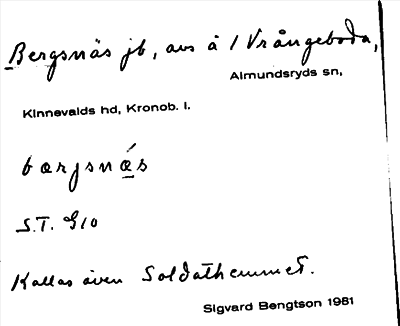 Bergsnäs jb, avs å 1 Vrångeboda,
Almundsryds sn,
Kinnevalds hd, Kronob. l.
bærjsnæ̀s
S.T. G10
Kallas även Soldathemmet.
Sigvard Bengtson 1981